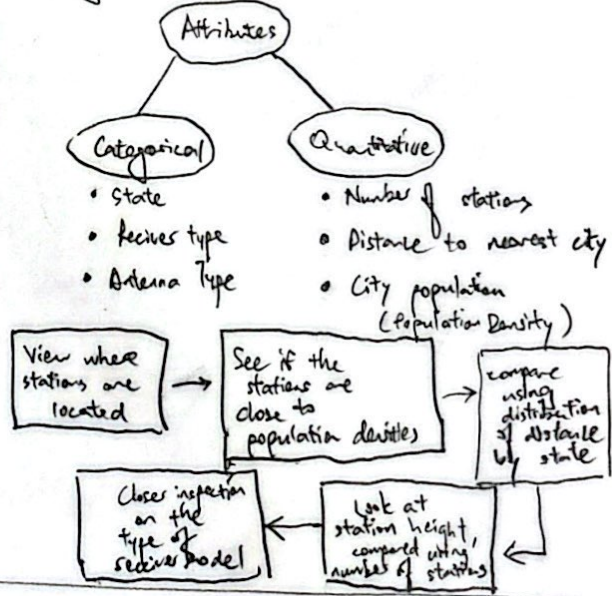 Attributes
Categorical
Quantitative
• State
• Reciver type
• Antenna Type
• Number of stations
• Distance to nearest city
• City population
(Population Density)
View where
stations are
located
See if the
stations are
close to
population densities
compare
using
distribution
of distance
by state
Look at
station height,
compared using,
number of stations
Closer inspection
on the
type of
receiver model